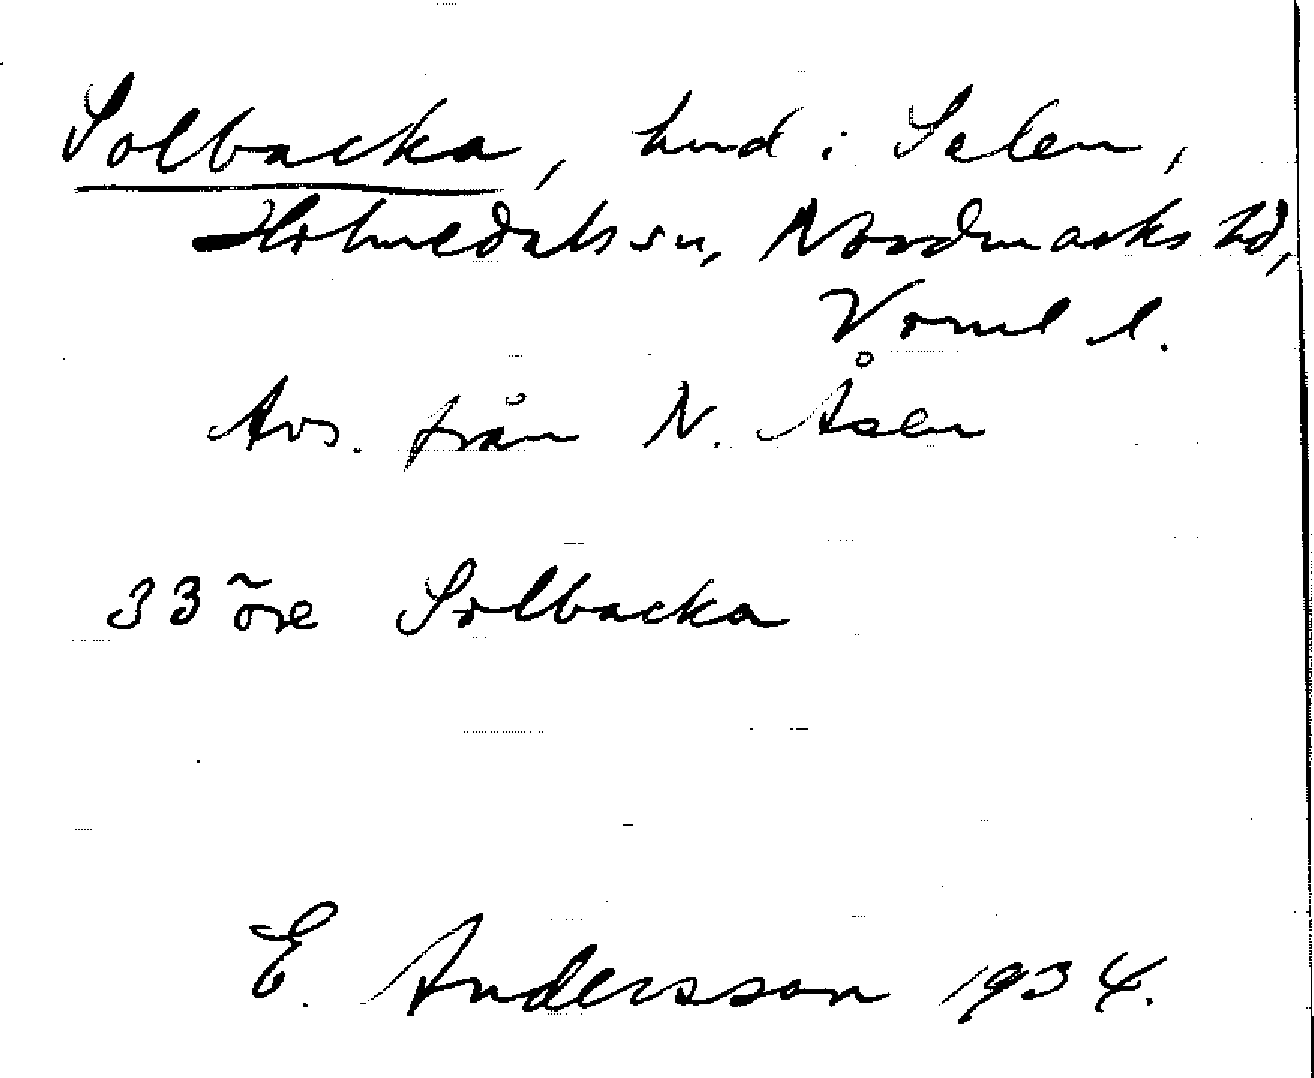 Solbacka, hmd i Selen,
Holmedals sn, Nordmarks hd,
Værml l.
Avs. från N. Åsen
33 öre Solbacka
E. Andersson 1934.